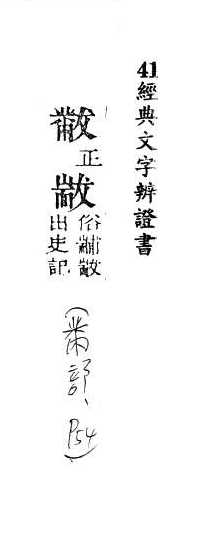 41經典文字辨證書
黻
正
俗黼黻
出史記
(黹部、P54)